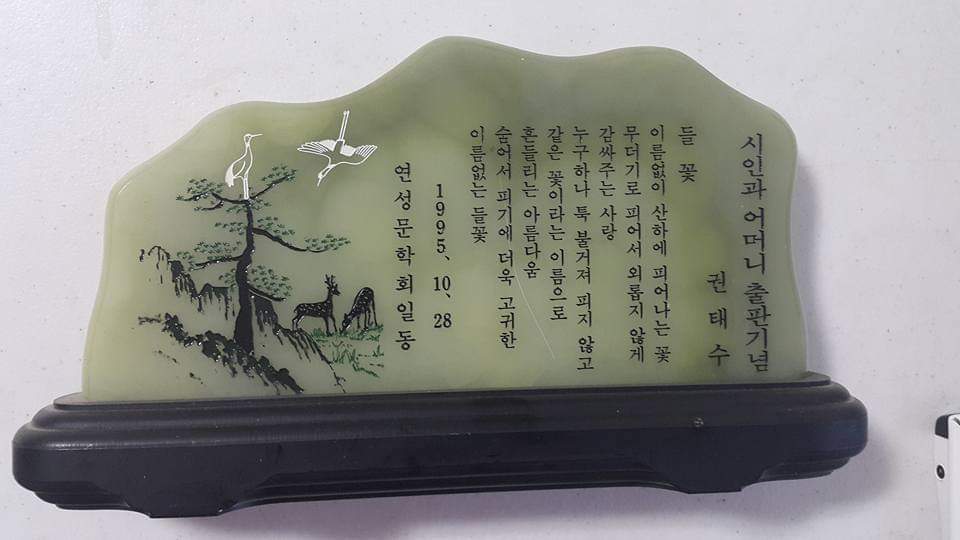 시인과 어머니 출판기념
권 태 수
들 꽃
이름없이 산하에 피어나는 꽃
무더기로 피어서 외롭지 않게
감싸주는 사랑
누구하나 툭 불거져 피지 않고
같은 꽃이라는 이름으로
흔들리는 아름다움
숨어서 피기에 더욱 고귀한
이름없는 들꽃
1995、10、28
연성문학회일동